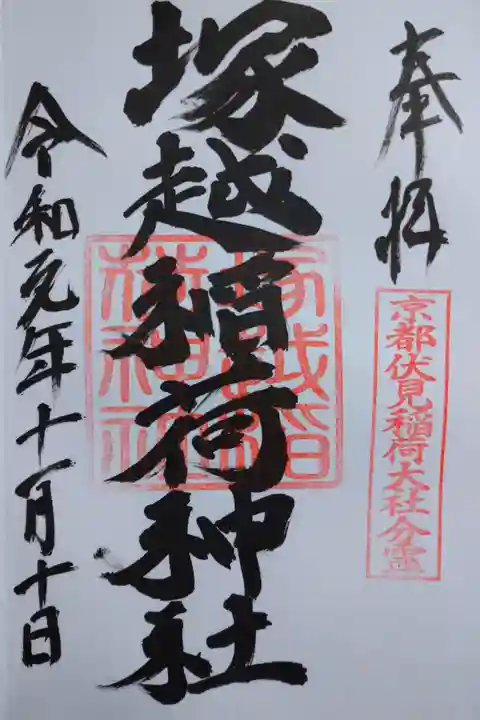 奉拝
京都伏見稲荷大社分霊
塚越稲荷神社
塚越稲荷神社
令和元年十一月十日